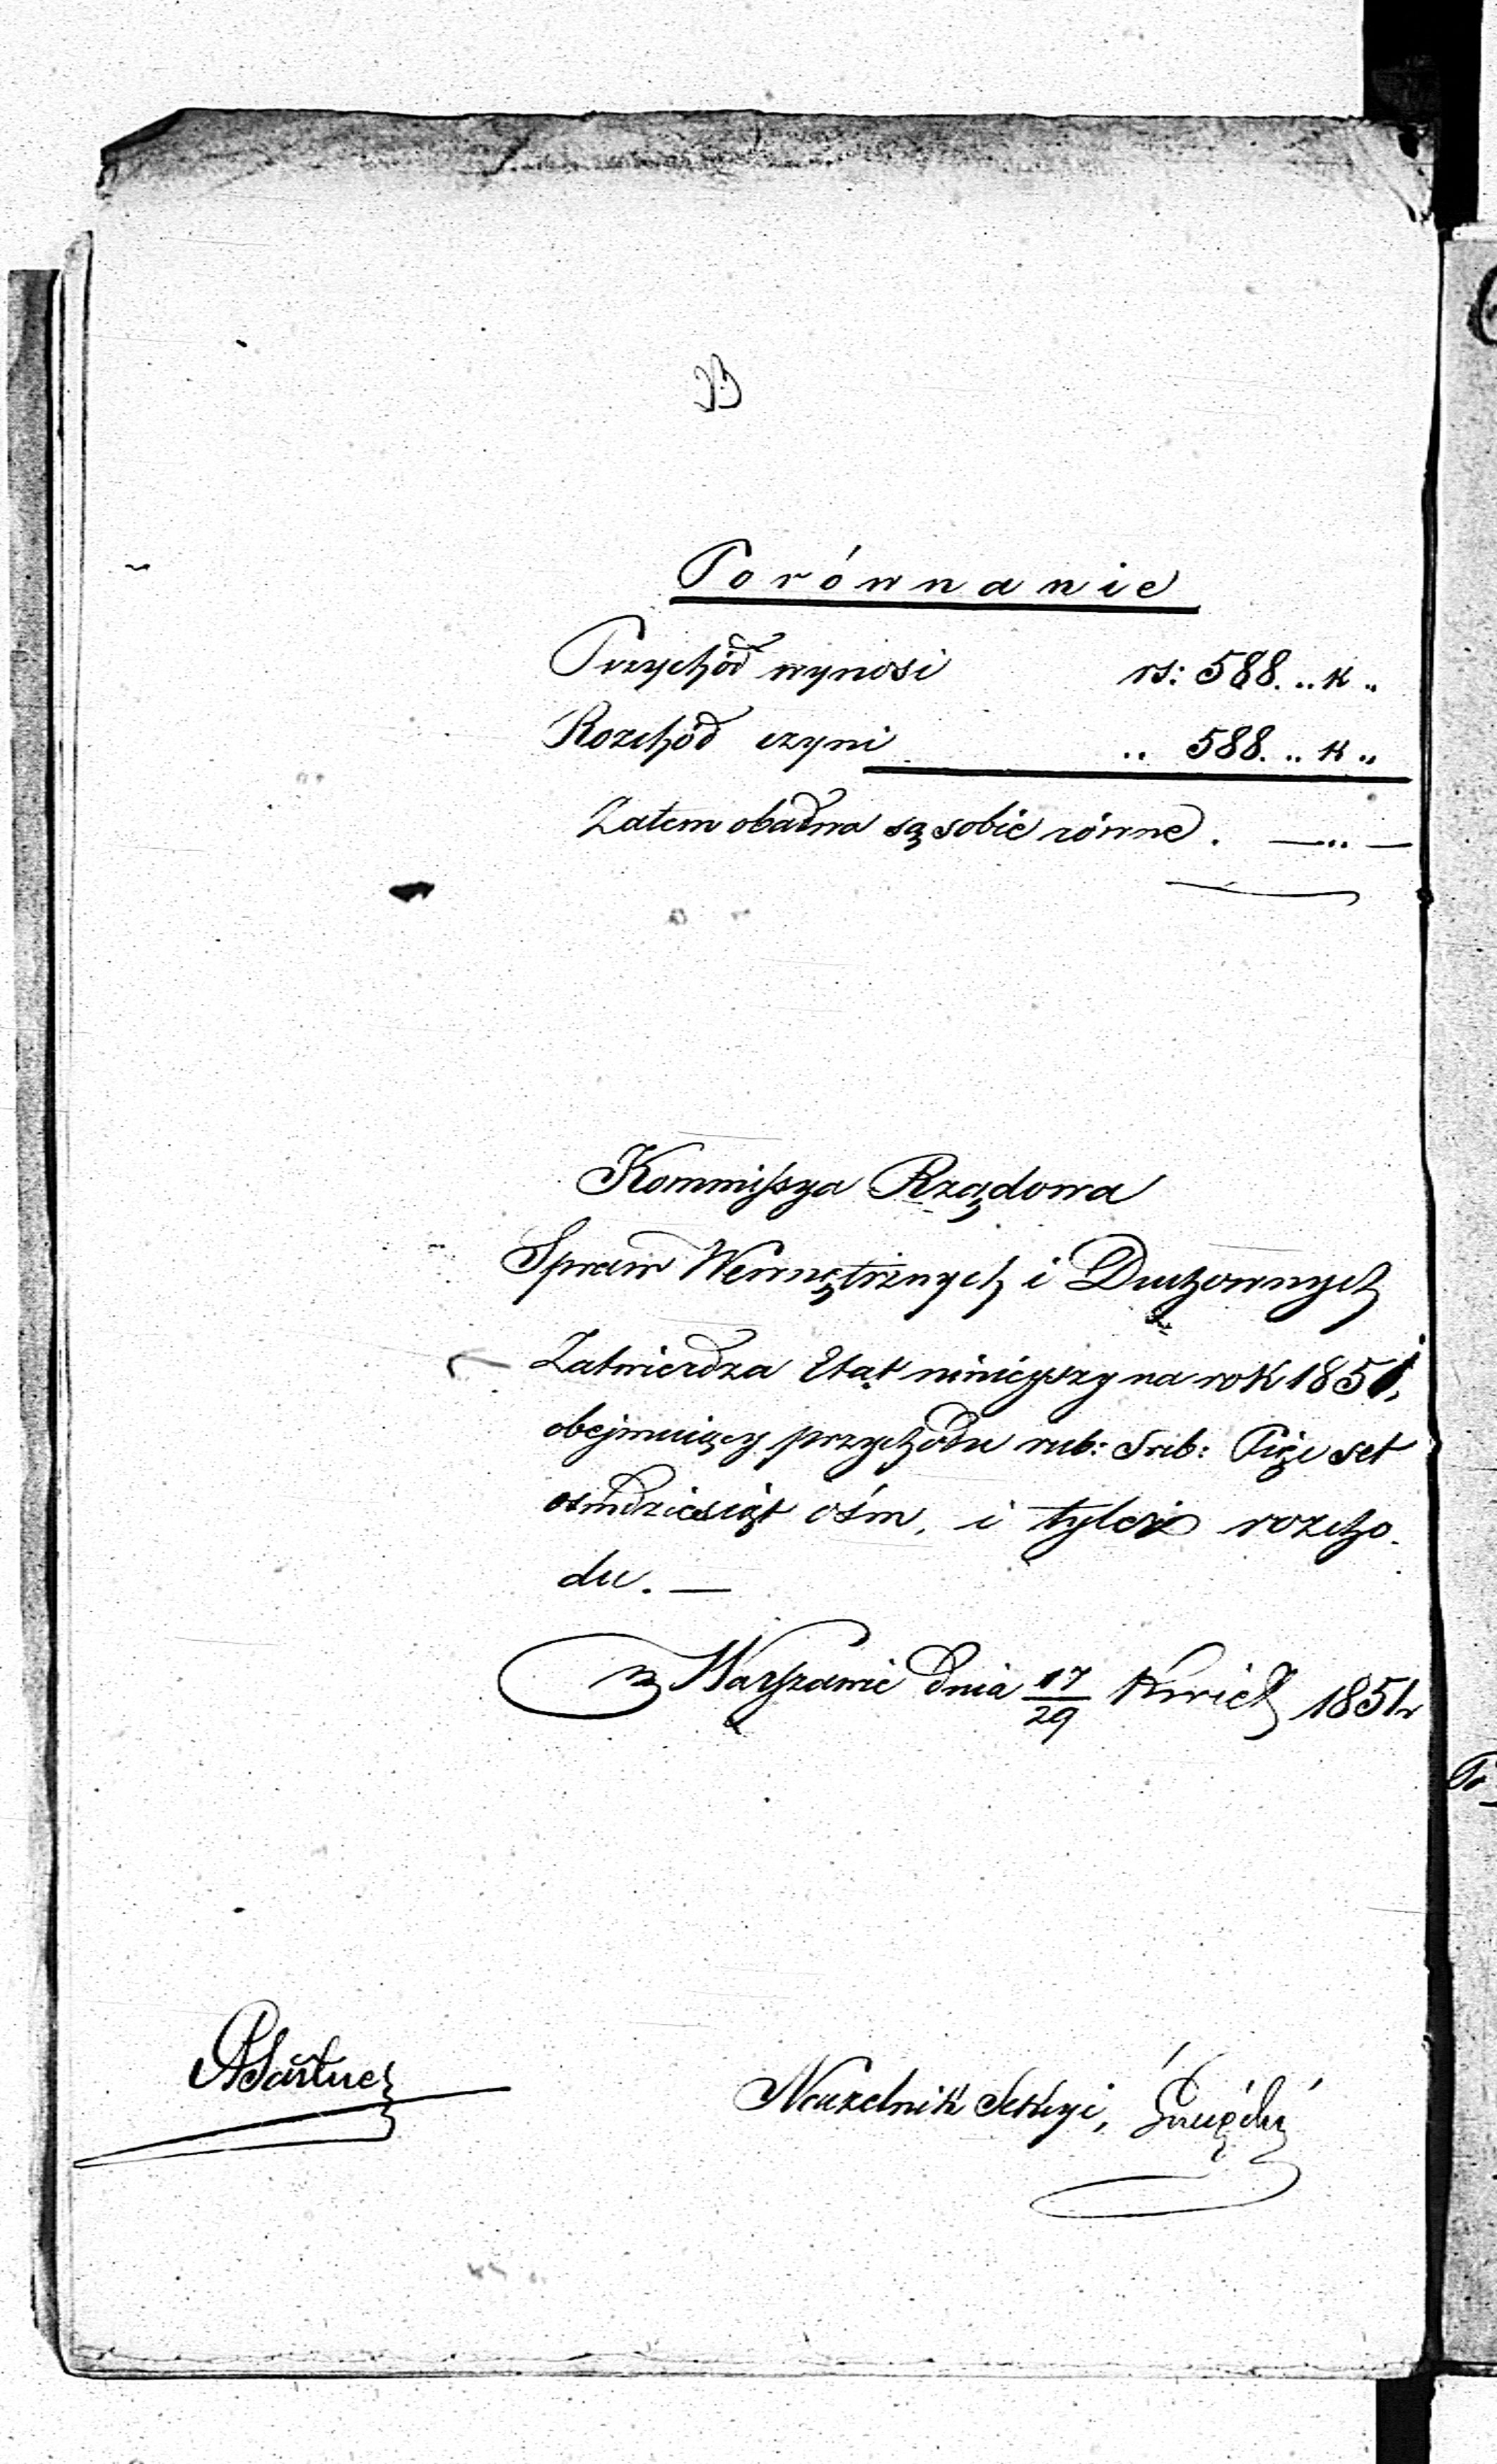 Porównanie
Przychód wynosi rs: 588. „ k „
Rozchód czyni „ 588. „ k „
Zatem obadwa są sobie równe. — „ —
Kommissya Rządowa
Spraw Wewnętrznych i Duchownych
Zatwierdza Etat ninieyszy na rok 1851,
obejmuiący przychodu rub: Srib: Pięć set
ośmdziesiąt ośm, i tyleż rozcho-
du. —
w Warszawie dnia 17/29 Kwiet 1851 r
Naczelnik Sekcyi,